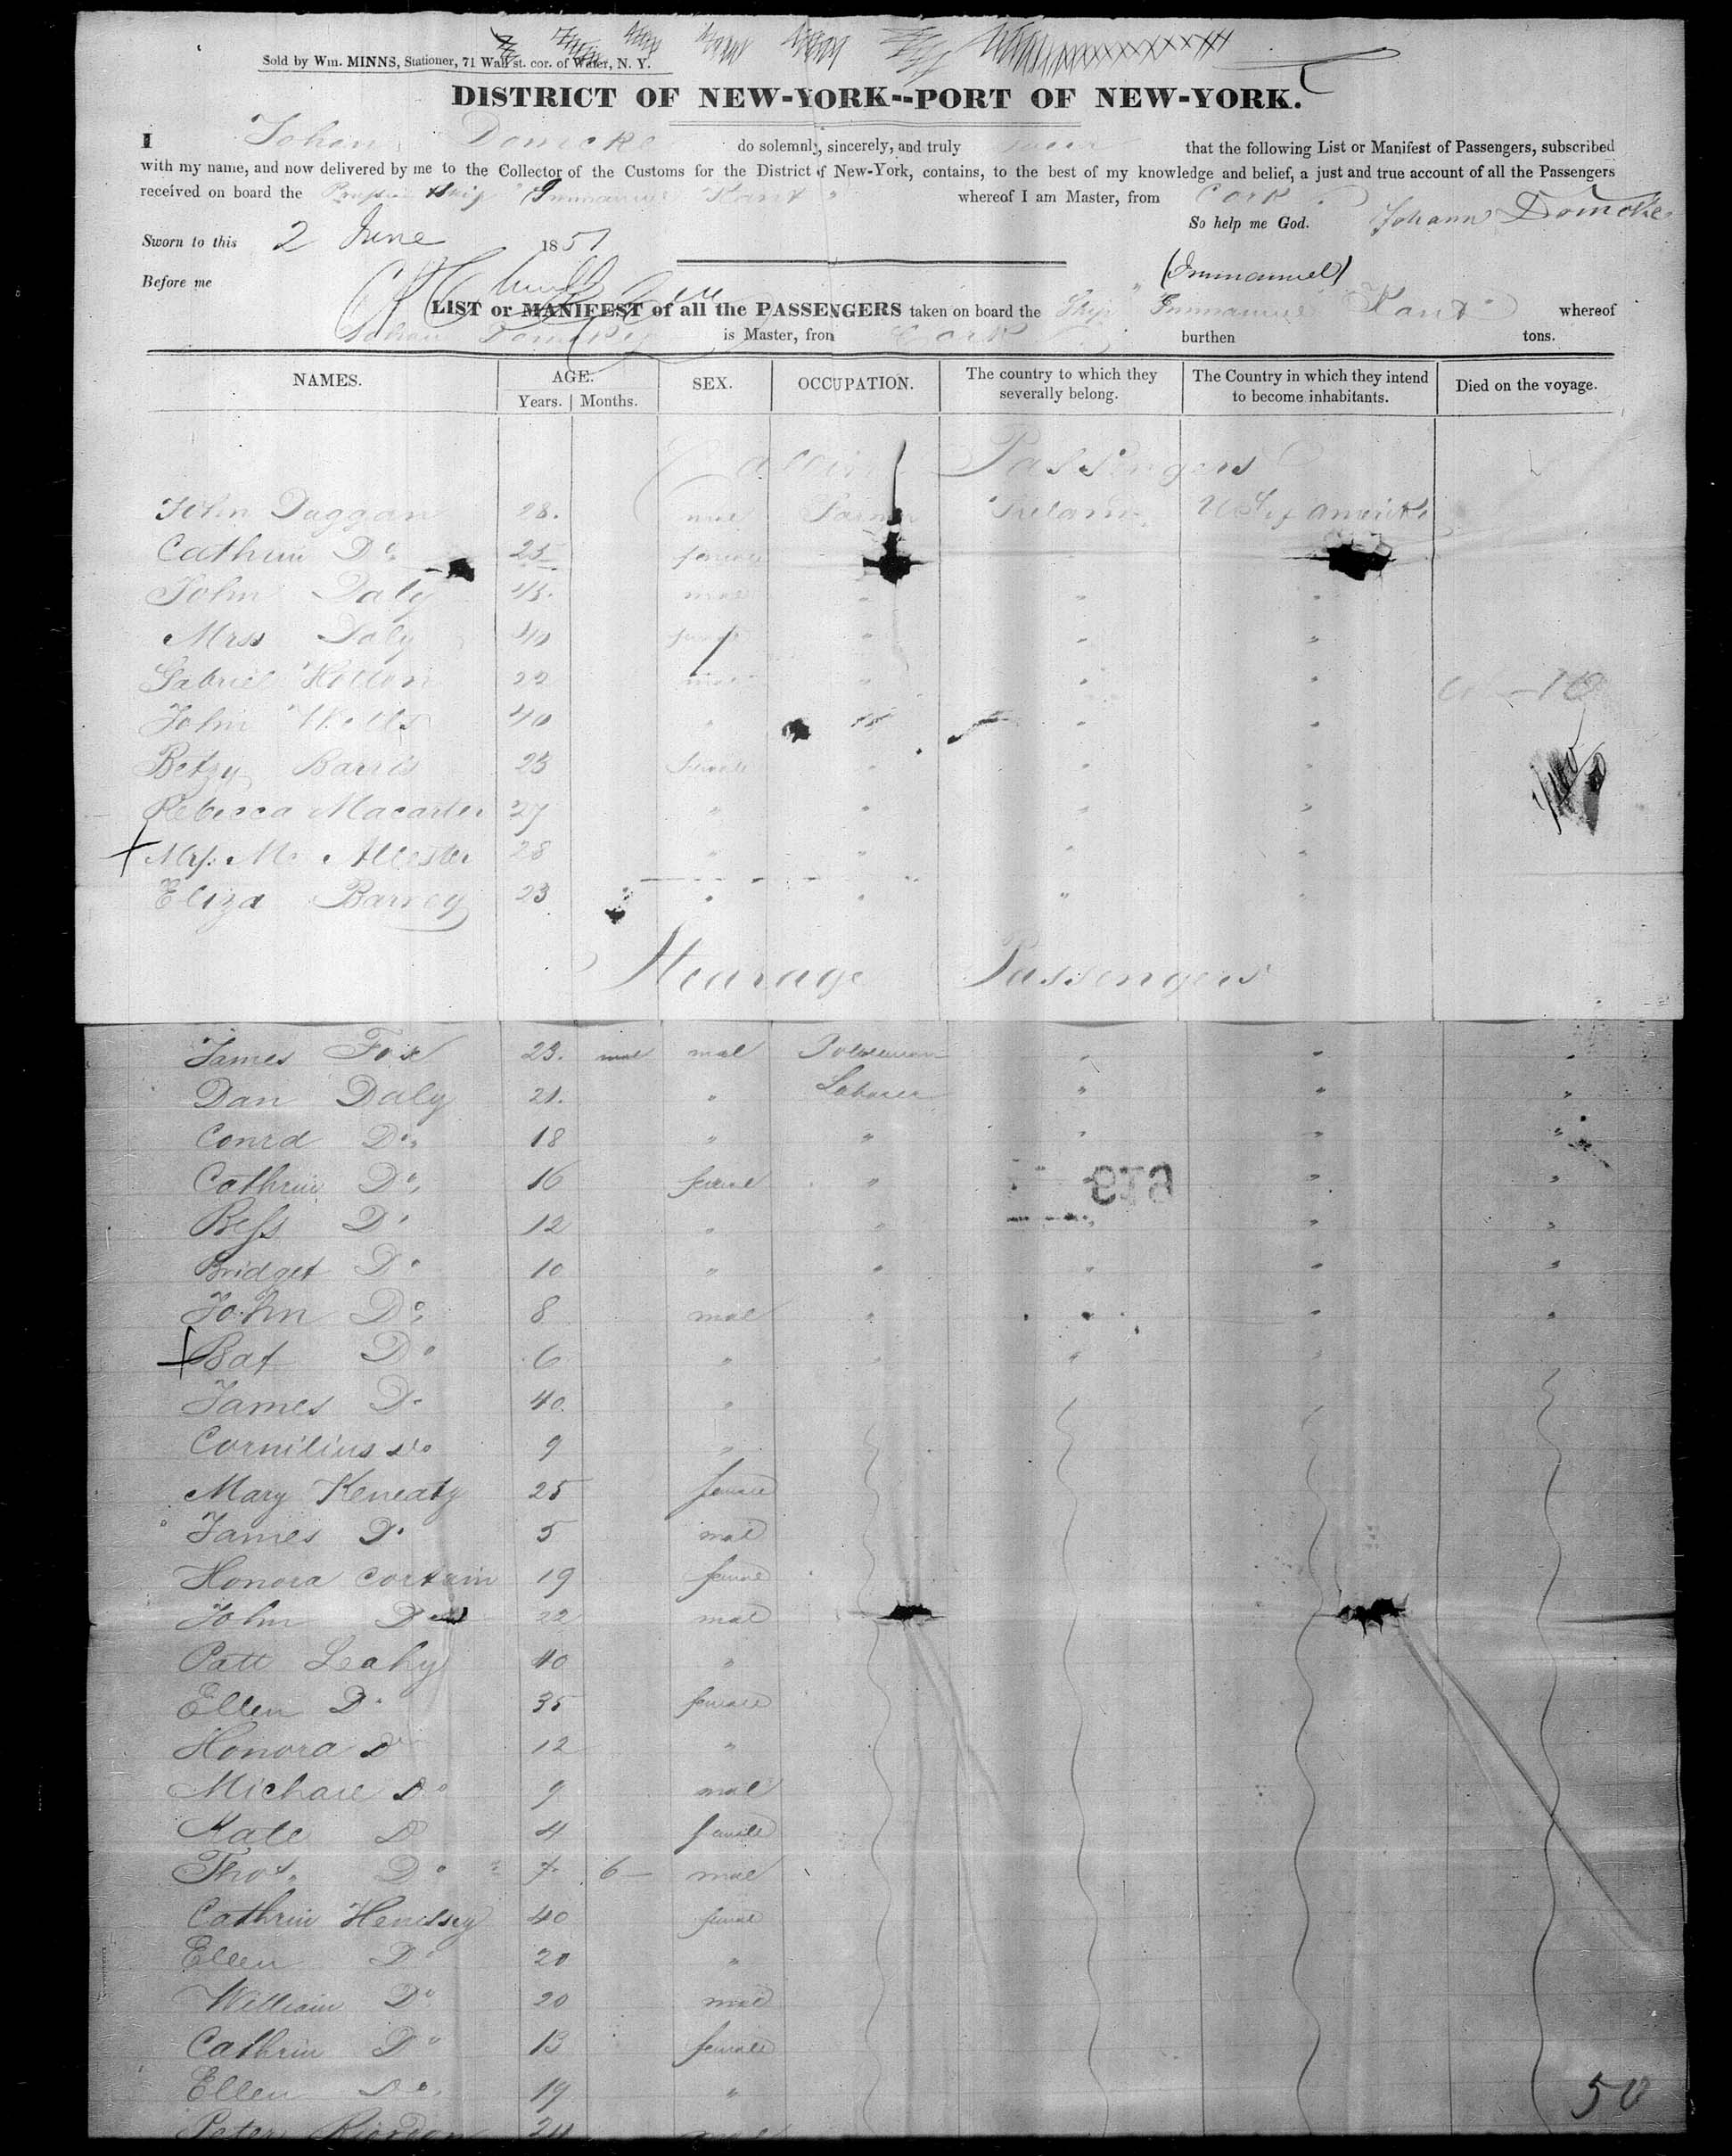 Sold by Wm. MINNS, Stationer, 71 Wall st. cor. of Water, N. Y.
DISTRICT OF NEW-YORK--PORT OF NEW-YORK.
I Johan Domcke do solemnly, sincerely, and truly swear that the following List or Manifest of Passengers, subscribed
with my name, and now delivered by me to the Collector of the Customs for the District of New-York, contains, to the best of my knowledge and belief, a just and true account of all the Passengers
received on board the Ship Immanuel Kant whereof I am Master, from Cork
So help me God. Johann Domcke
Sworn to this 2 June 1851
Before me
(Immanuel)
LIST or MANIFEST of all the PASSENGERS taken on board the Ship Immanuel Kant whereof
Johan Domcke is Master, from Cork burthen tons.
NAMES. AGE. SEX. OCCUPATION. The country to which they severally belong. The Country in which they intend to become inhabitants. Died on the voyage.
Years. Months.
Passengers
John Duggan 28. mal Farmer Ireland U S of America
Cathrin Do 25 female
John Daly 45. mal " "
Mrss Daly 40 female " " "
Gabriel 22 mal " " "
John 40 " " "
Betzy Barris 23 female " " "
Rebecca Macarter 27 " " " "
Mrs. Mc Allester 28 " " " "
Eliza Barrey 23 " " " "
Stearage Passengers
James Fox 23. mal mal Policeman " " "
Dan Daly 21. " Laborer " " "
Conrd Do 18 " " " " "
Cathrin Do 16 female " " "
Bess Do 12 " " " " "
Bridget Do 10 " " " " "
John Do 8 mal " " " "
Bat Do 6 " " " "
James Do 40. "
Cornilius Do 9 "
Mary Keneaty 25 female
James Do 5 mal
Honora Cortain 19 female
John Do 22 mal
Patt Leahy 40 "
Ellen Do 35 female
Honora Do 12 "
Michael Do 9 mal
Kate Do 4 female
Thos. Do 6 mal
Cathrin Henessy 40 female
Ellen Do 20 "
William Do 20 mal
Cathrin Do 13 female
Ellen Do. 19 "
Peter Riordon 24 mal
50